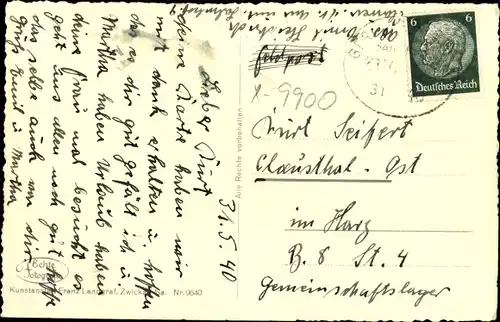 Lieber Kurt
31.5.40
deine Karte haben wir
mit dank erhalten u. hoffen
das es dir gut gefällt ich u.
Martha haben Urlaub haben
deine Frau mal besucht es
geht uns allen noch gut hoffe
das selbe auch von dir.
Gruß Emil u. Martha
Echte
Fotografie
Kunstanstalt Franz Landgraf, Zwickau/Sa. Nr. 9640
Alle Rechte vorbehalten
Abs. Emil
Feldpost
X-9900
6 6
Deutsches Reich
31
Kurt Seifert
Clausthal-Ost
im Harz
B. 8 St. 4
Gemeinschaftslager